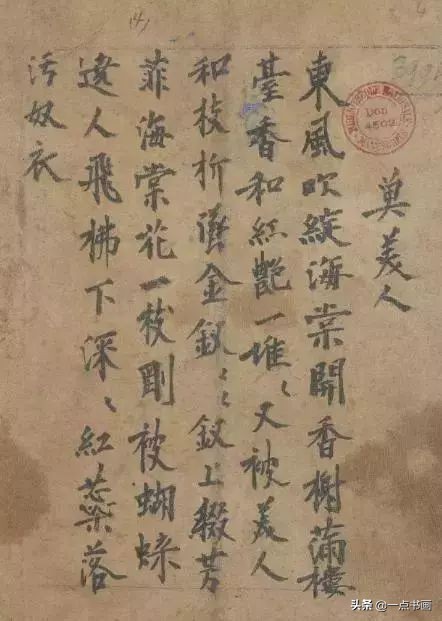 美人
東風吹綻海棠開香榭滿樓
臺香和紅艷一堆〻又被美人
和枝折墜金釵〻〻釵上綴芳
菲海棠花一枝剛被蝴蝶
遶人飛拂下深〻紅蕊落
污奴衣
DON
4502
头条 @一点书画